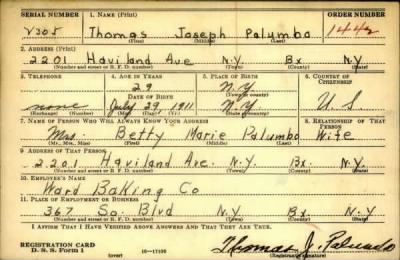 SERIAL NUMBER 1. NAME (Print) ORDER NUMBER
V305 Thomas Joseph Palumbo 1442
(First) (Middle) (Last)
2. ADDRESS (Print)
2201 Haviland Ave N.Y. Bx N.Y.
(Number and street or R. F. D. number) (Town) (County) (State)
3. TELEPHONE 4. AGE IN YEARS 5. PLACE OF BIRTH 6. COUNTRY OF CITIZENSHIP
29 N.Y.
DATE OF BIRTH (Town or county)
none July 29, 1911 N.Y. U S
(Exchange) (Number) (Mo.) (Day) (Yr.) (State or country)
7. NAME OF PERSON WHO WILL ALWAYS KNOW YOUR ADDRESS 8. RELATIONSHIP OF THAT PERSON
Mrs. Betty Marie Palumbo Wife
(Mr., Mrs., Miss) (First) (Middle) (Last)
9. ADDRESS OF THAT PERSON
2201 Haviland Ave. N.Y. Bx. N.Y.
(Number and street or R. F. D. number) (Town) (County) (State)
10. EMPLOYER'S NAME
Ward Baking Co
11. PLACE OF EMPLOYMENT OR BUSINESS
367 So. Blvd Bx N.Y.
(Number and street or R. F. D. number) (Town) (County) (State)
I AFFIRM THAT I HAVE VERIFIED ABOVE ANSWERS AND THAT THEY ARE TRUE.
REGISTRATION CARD
D. S. S. Form 1 (over) Thomas J. Palumbo